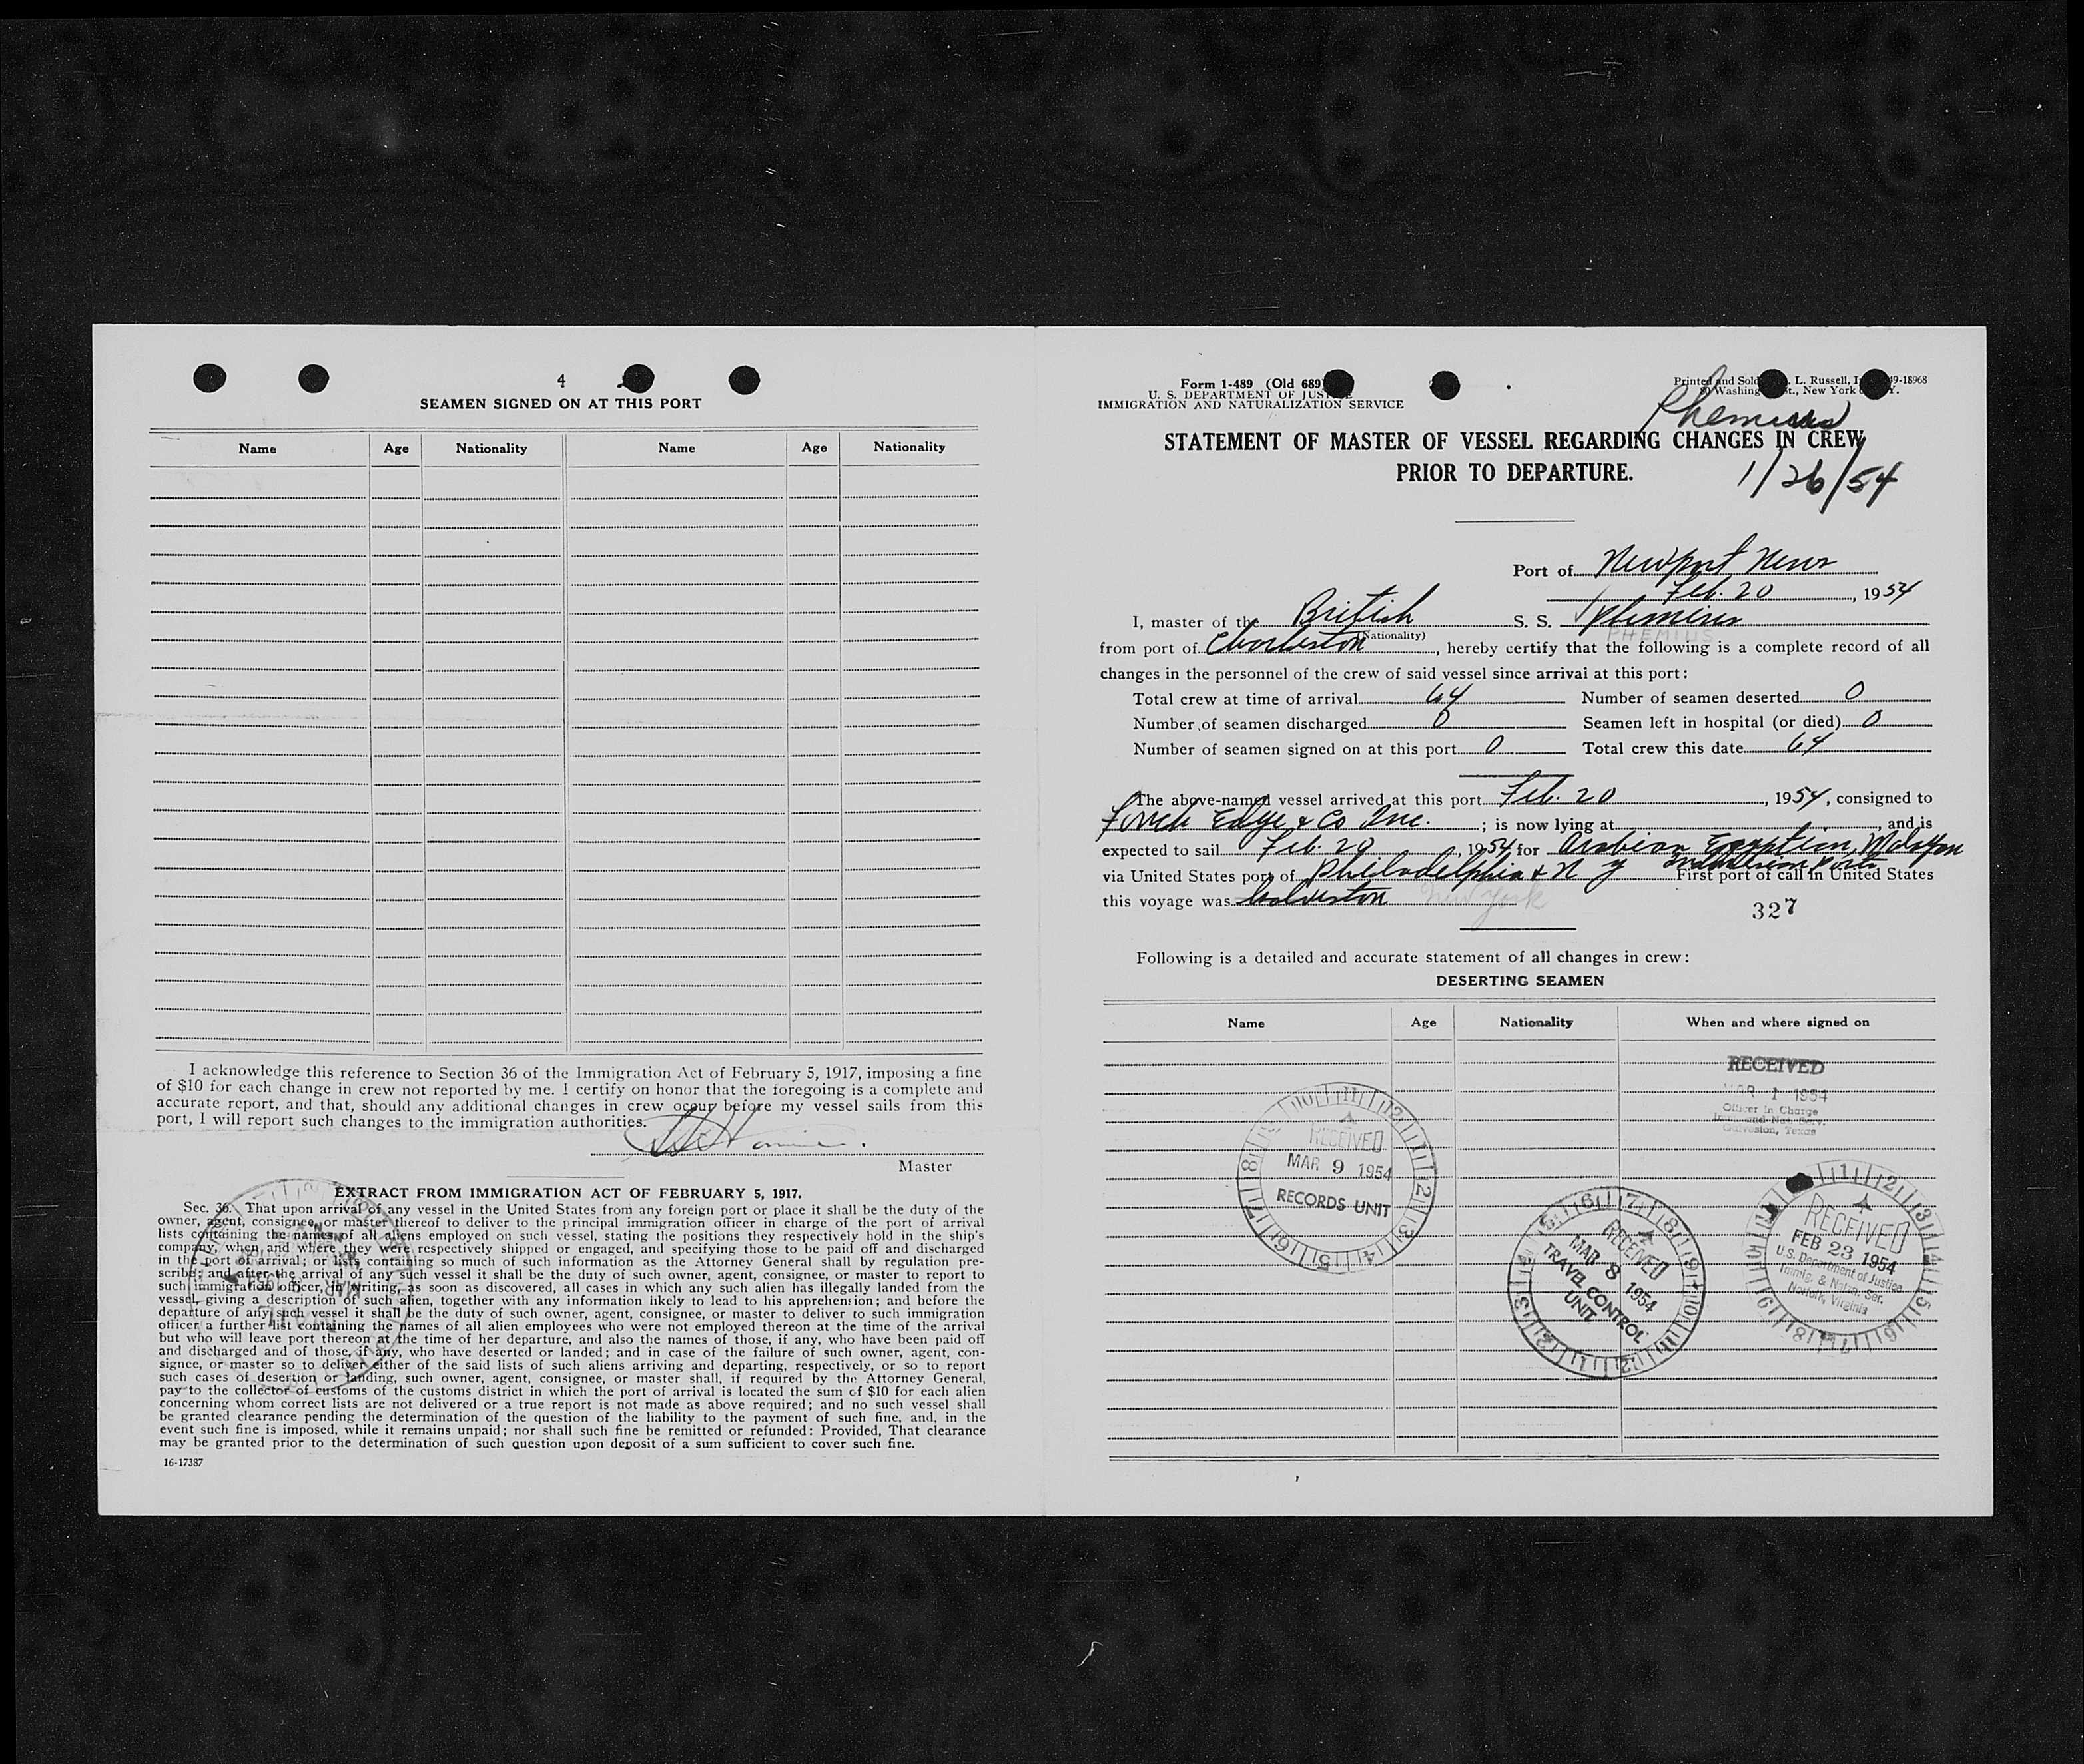 4
SEAMEN SIGNED ON AT THIS PORT
Name Age Nationality Name Age Nationality
I acknowledge this reference to Section 36 of the Immigration Act of February 5, 1917, imposing a fine
of $10 for each change in crew not reported by me. I certify on honor that the foregoing is a complete and
accurate report, and that, should any additional changes in crew occur before my vessel sails from this
port, I will report such changes to the immigration authorities.
Master
EXTRACT FROM IMMIGRATION ACT OF FEBRUARY 5, 1917.
Sec. 36. That upon arrival of any vessel in the United States from any foreign port or place it shall be the duty of the
owner, agent, consignee, or master thereof to deliver to the principal immigration officer in charge of the port of arrival
lists containing the names of all aliens employed on such vessel, stating the positions they respectively hold in the ship's
company, when and where they were respectively shipped or engaged, and specifying those to be paid off and discharged
in the port of arrival; or lists containing so much of such information as the Attorney General shall by regulation pre-
scribe; and after the arrival of any such vessel it shall be the duty of such owner, agent, consignee, or master to report to
such immigration officer, in writing, as soon as discovered, all cases in which any such alien has illegally landed from the
vessel, giving a description of such alien, together with any information likely to lead to his apprehension; and before the
departure of any such vessel it shall be the duty of such owner, agent, consignee, or master to deliver to such immigration
officer a further list containing the names of all alien employees who were not employed thereon at the time of the arrival
but who will leave port thereon at the time of her departure, and also the names of those, if any, who have been paid off
and discharged and of those, if any, who have deserted or landed; and in case of the failure of such owner, agent, con-
signee, or master so to deliver either of the said lists of such aliens arriving and departing, respectively, or so to report
such cases of desertion or landing, such owner, agent, consignee, or master shall, if required by the Attorney General,
pay to the collector of customs of the customs district in which the port of arrival is located the sum of $10 for each alien
concerning whom correct lists are not delivered or a true report is not made as above required; and no such vessel shall
be granted clearance pending the determination of the question of the liability to the payment of such fine, and, in the
event such fine is imposed, while it remains unpaid; nor shall such fine be remitted or refunded: Provided, That clearance
may be granted prior to the determination of such question upon deposit of a sum sufficient to cover such fine.
16-17387
Form 1-489 (Old 689
U. S. DEPARTMENT OF JUSTICE
IMMIGRATION AND NATURALIZATION SERVICE
Printed and Sold L. Russell, 9-18968
Washing t., New York Y.
Phemius
STATEMENT OF MASTER OF VESSEL REGARDING CHANGES IN CREW
PRIOR TO DEPARTURE.
1/26/54
Port of Newport News
Feb. 20, 1954
I, master of the British S. S. Phemius
(Nationality) PHEMIUS
from port of Charleston, hereby certify that the following is a complete record of all
changes in the personnel of the crew of said vessel since arrival at this port:
Total crew at time of arrival 64 Number of seamen deserted 0
Number of seamen discharged 0 Seamen left in hospital (or died) 0
Number of seamen signed on at this port 0 Total crew this date 64
The above-named vessel arrived at this port Feb. 20, 1954, consigned to
Funch Edye & Co Inc.; is now lying at , and is
expected to sail Feb. 20, 1954 for Arabian Egyptian, Malayan
Indonesian Ports
via United States port of Philadelphia & N Y First port of call in United States
this voyage was Galveston New York
327
Following is a detailed and accurate statement of all changes in crew:
DESERTING SEAMEN
Name Age Nationality When and where signed on
RECEIVED
MAR 1 1954
Officer in Charge
Immig. and Nat. Serv.
Galveston, Texas
RECEIVED
MAR 9 1954
RECORDS UNIT
RECEIVED
MAR 8 1954
TRAVEL CONTROL
UNIT
RECEIVED
FEB 23 1954
U.S. Department of Justice
Immig. & Natzn. Ser.
Norfolk, Virginia